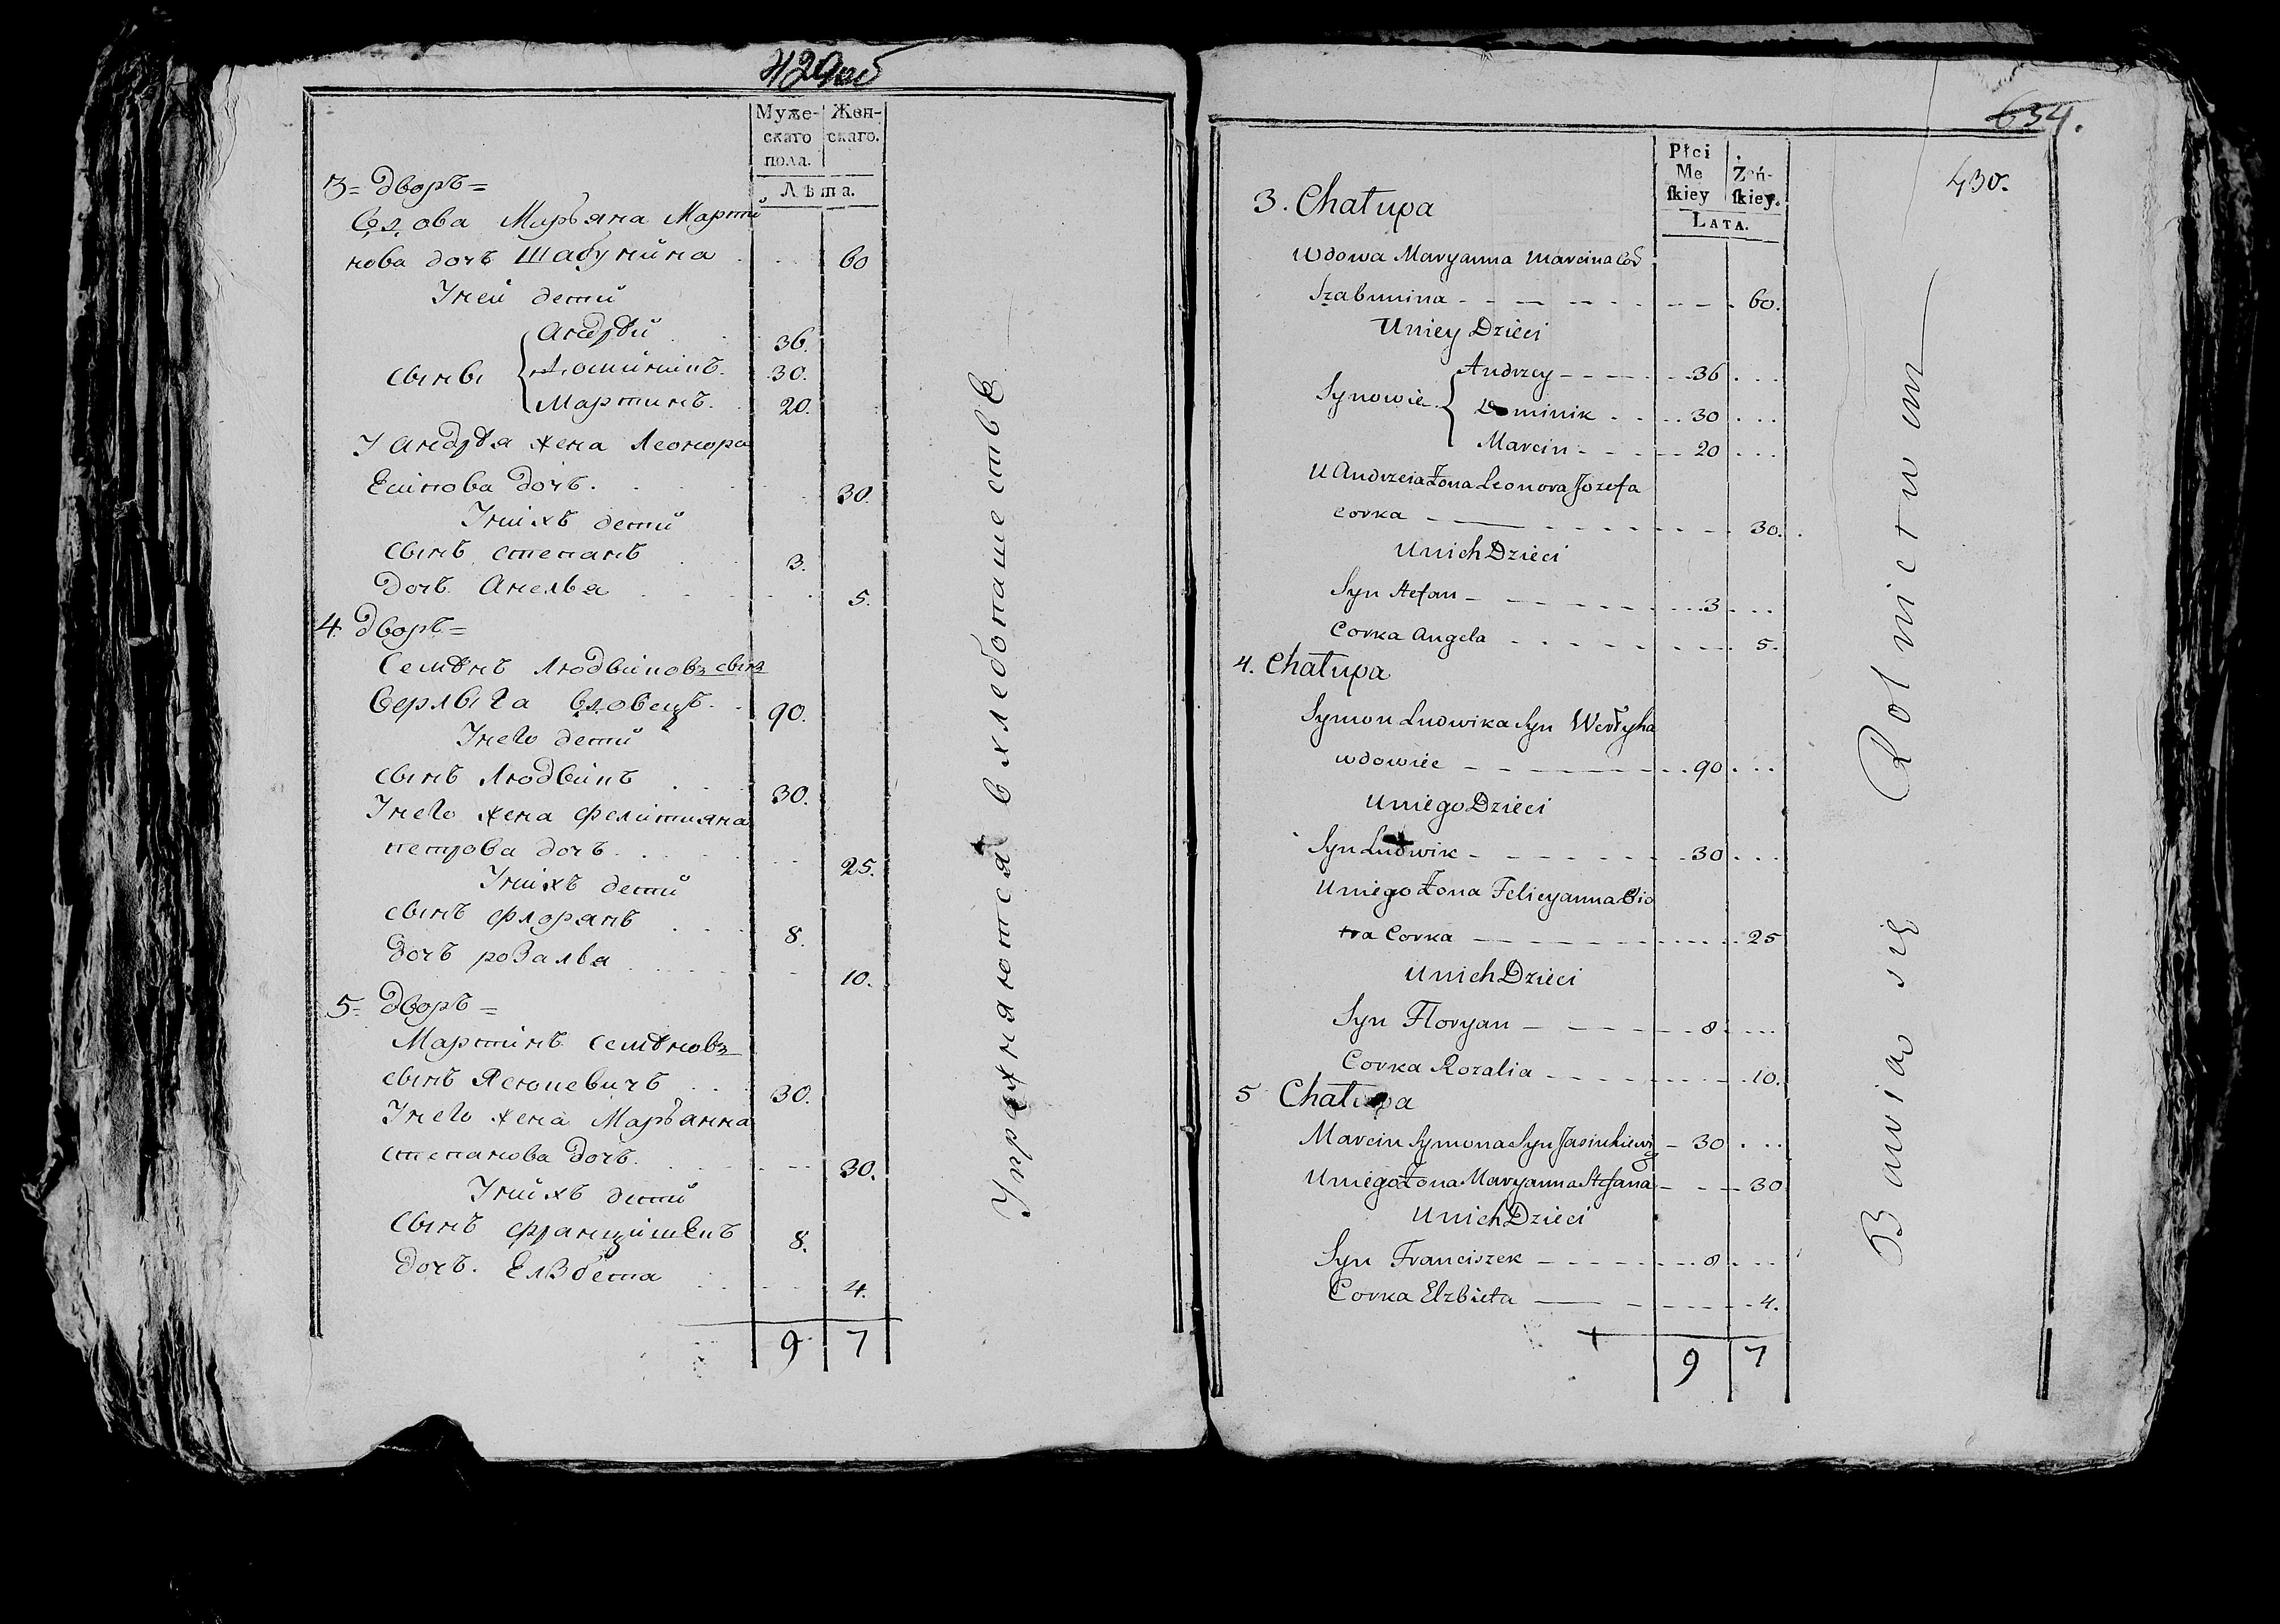 429 об
Муже-
скаго
пола.
Жен-
скаго.
Лѣта.
3= дворъ=
Вдова Марьяна Марти
нова дочь Шабунина 60
У ней дети
Андрѣй 36.
сыны Доминикъ. 30.
Мартинъ. 20.
У Андрѣя жена Леонора
Есипова дочь. 30.
У нихъ дети
сынъ степанъ 3.
дочь Анелья 5.
4. дворъ=
Семѣнъ Людвиковъ сынъ
Верлыга вдовецъ. 90.
У него дети
сынъ Людвикъ 30.
У него жена Фелитияна
петрова дочь. 25.
У нихъ дети
сынъ флорянъ 8.
дочь розалья 10.
5= дворъ=
Мартинъ семѣновъ
сынъ Ясюкевичъ 30.
У него жена Марьянна
степанова дочь. 30.
У нихъ дети
Сынъ францишекъ 8.
дочь. Елзбета 4.
9 7
Упражняются в хлебопашестве
634.
430.
Płci
Me
ſkiey
Żeń-
ſkiey.
LATA.
3. Chałupa
Wdowa Maryanna Marcina Cor
Szabunina 60.
U niey Dzieci
Andrzey 36
Synowie Dominik 30
Marcin 20
U Andrzeia Żona Leonora Jozefa
corka 30.
U nich Dzieci
Syn Stefan 3
Corka Angela 5.
4. Chałupa
Symon Ludwika Syn Werłyha
wdowiec 90
U niego Dzieci
Syn Ludwik 30
U niego Żona Felicyanna Pio
tra Corka 25
U nich Dzieci
Syn Floryan 8
Corka Rozalia 10.
5 Chałupa
Marcin Symona Syn Jasiukiewicz 30
U niego Żona Maryanna Stefana 30
U nich Dzieci
Syn Franciszek 8
Corka Elzbieta 4.
9 7
Bawiąo się Rolnictwem